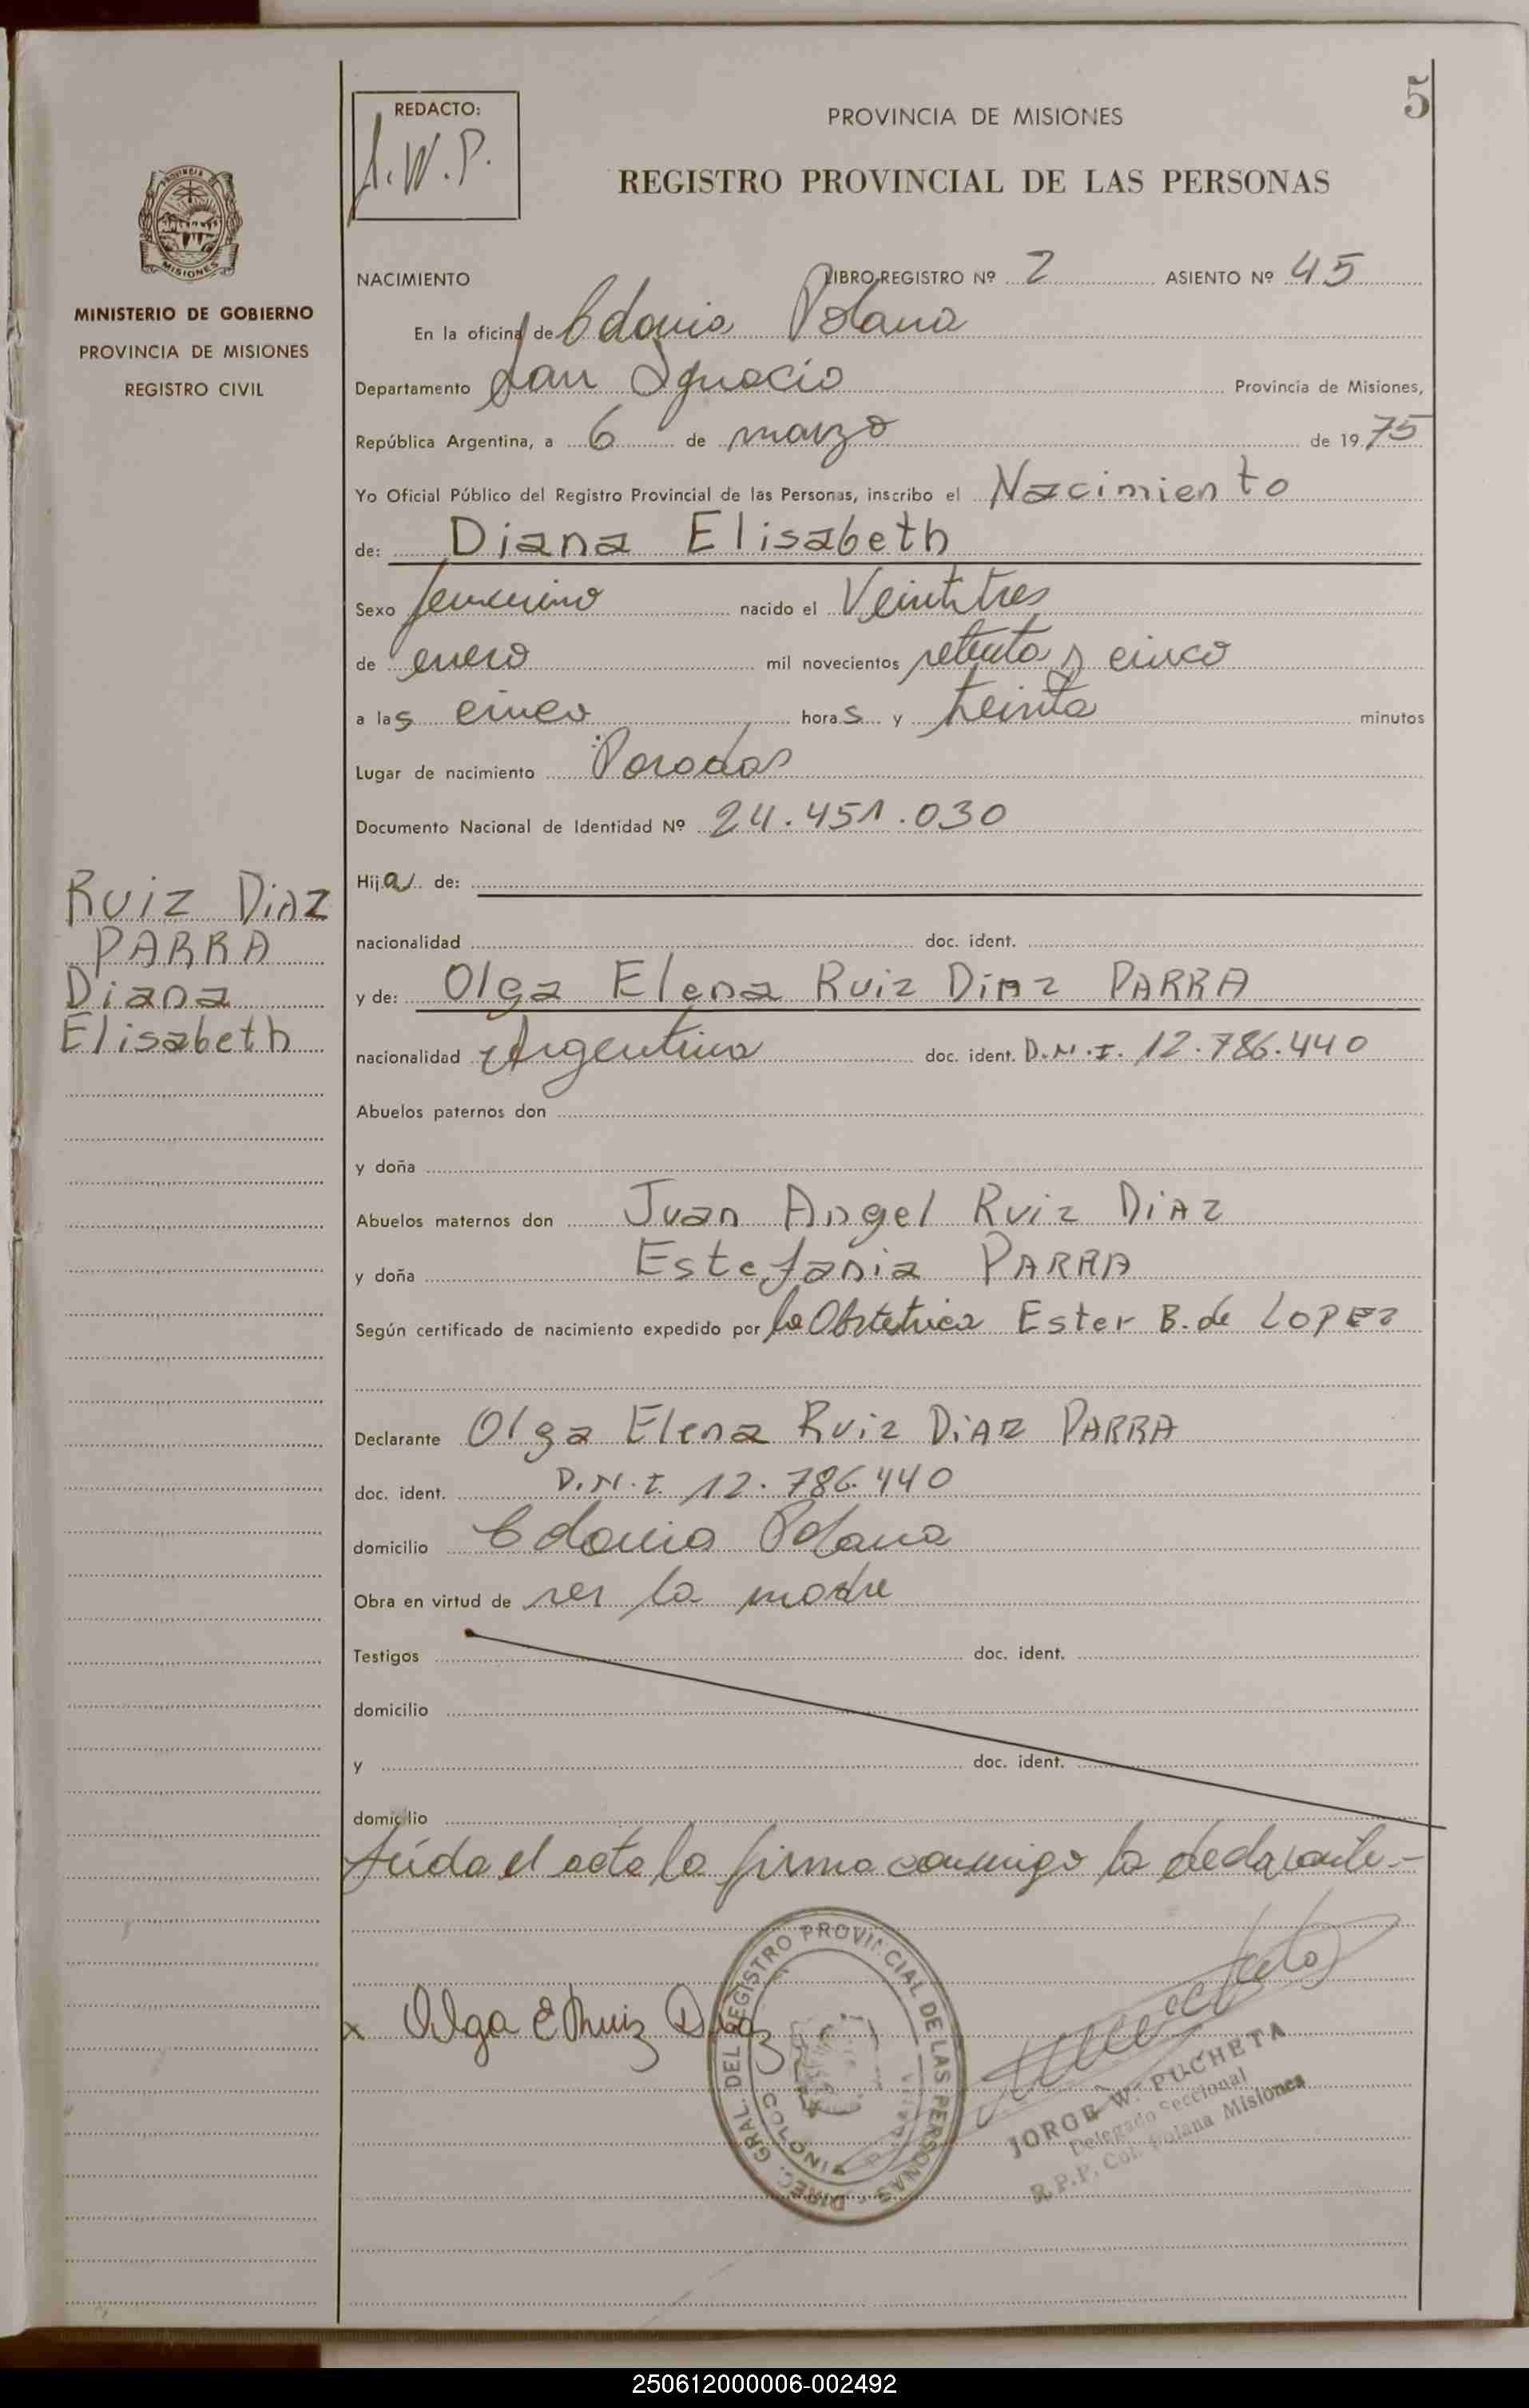 5
REDACTO:
J.W.P.
PROVINCIA DE MISIONES
REGISTRO PROVINCIAL DE LAS PERSONAS
PROVINCIA DE
MISIONES
MINISTERIO DE GOBIERNO
PROVINCIA DE MISIONES
REGISTRO CIVIL
NACIMIENTO LIBRO REGISTRO Nº 2 ASIENTO Nº 45
En la oficina de Colonia Polana
Departamento San Ignacio Provincia de Misiones,
República Argentina, a 6 de marzo de 1975
Yo Oficial Público del Registro Provincial de las Personas, inscribo el Nacimiento
de: Diana Elisabeth
Sexo femenino nacido el Veintitres
de enero mil novecientos setenta y cinco
a las cinco horas y treinta minutos
Lugar de nacimiento Posadas
Documento Nacional de Identidad Nº 24.451.030
Ruiz DiAZ
PARRA
Diana
Elisabeth
Hija de:
nacionalidad doc. ident.
y de: Olga Elena Ruiz DiAz PARRA
nacionalidad Argentina doc. ident. D.N.I. 12.786.440
Abuelos paternos don
y doña
Abuelos maternos don Juan Angel Ruiz DiAz
y doña Estefania PARRA
Según certificado de nacimiento expedido por la Obstetrica Ester B. de LOPEz
Declarante Olga Elena Ruiz DiAz PARRA
doc. ident. D.N.I. 12.786.440
domicilio Colonia Polana
Obra en virtud de ser la madre
Testigos doc. ident.
domicilio
y doc. ident.
domicilio
Leída el acta la firma conmigo la declarante-
x Olga E Ruiz Diaz
DIREC. GRAL. DEL REGISTRO PROVINCIAL DE LAS PERSONAS
JORGE W. PUCHETA
Delegado Seccional
R.P.P. Col. Polana Misiones
250612000006-002492